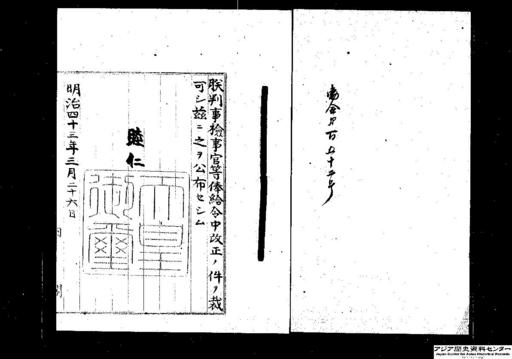 勅令第百五十二号
朕判事検事官等俸給令中改正ノ件ヲ裁
可シ茲ニ之ヲ公布セシム
睦仁
天皇御璽
明治四十三年三月二十六日
アジア歴史資料センター
Japan Center for Asian Historical Records